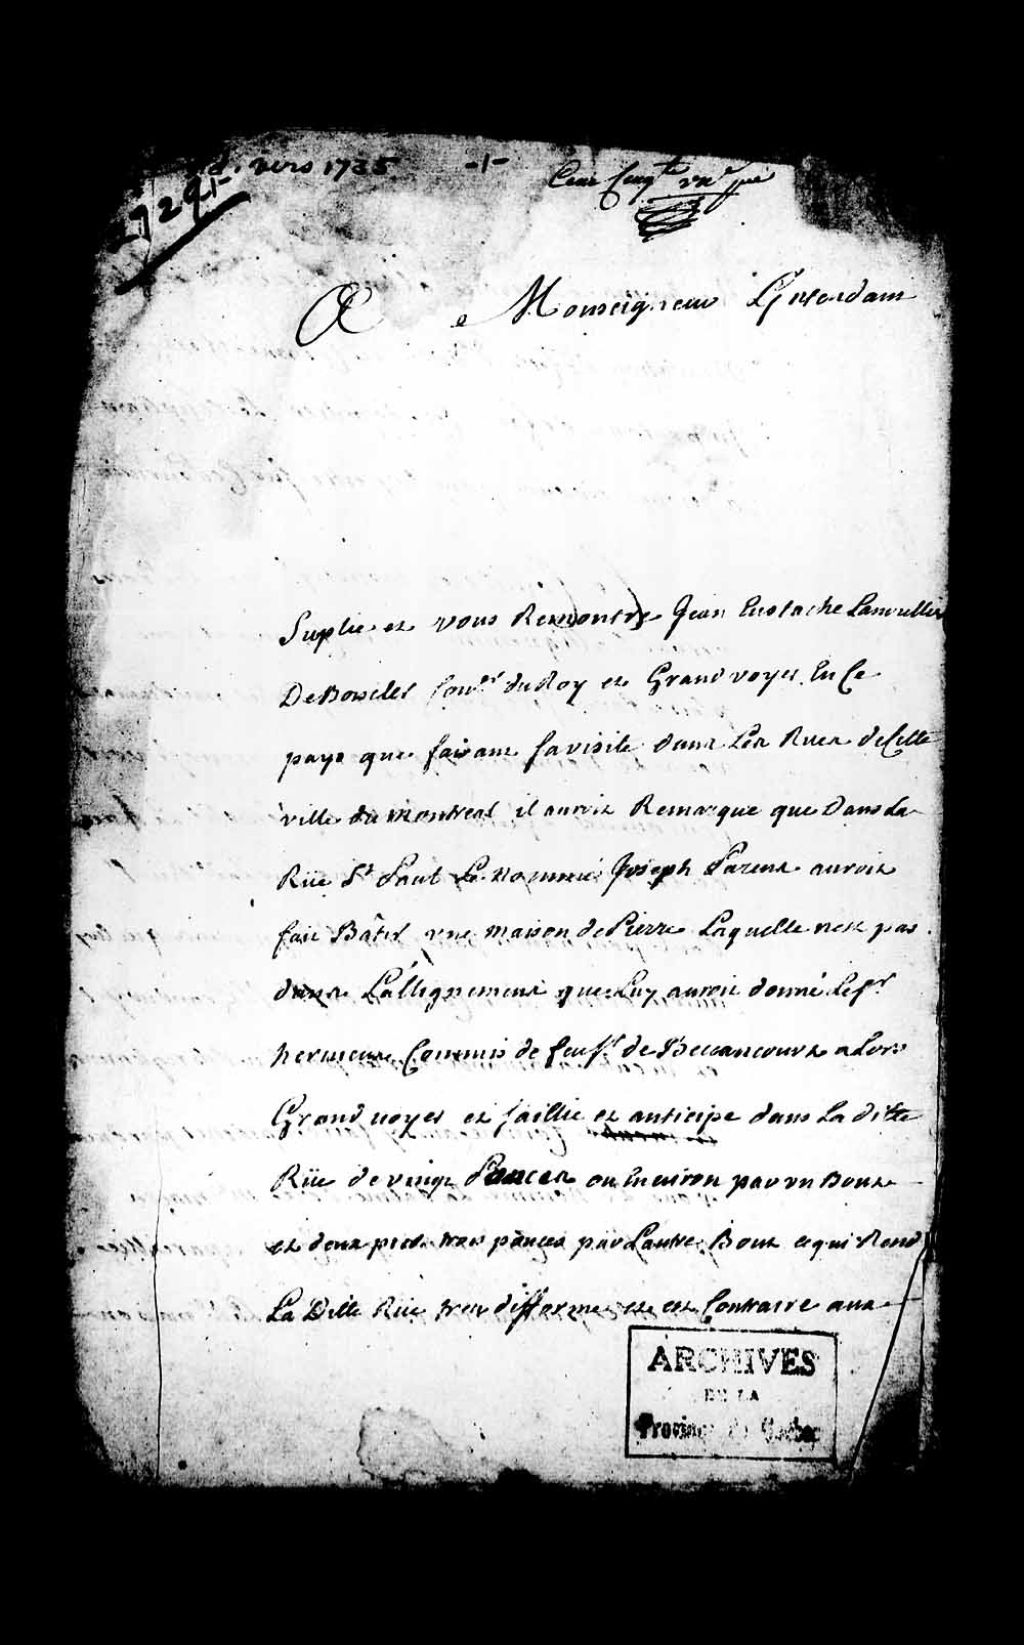 vers 1735 -1-
9291
Cent Cinqte une pce
A Monseigneur L'Intendant
Suplie et vous Remontre Jean Eustache Lanoullier
De Boisclet Conser du Roy et Grand voyer En Ce
pays que faisant sa visite dans Les Rues de Cette
ville du Montreal il auroit Remarque que Dans La
Rüe St Paul Le nommé Joseph Parent auroit
fait Bâtir une maison de Pierre Laquelle nest pas
dans L'allignement que Luy auroit donné Le Sr
hermeure Commis de feu Sr de Beccancourt a Lors
Grand voyer et saillie et anticipe dans La ditte
Rüe de vingt Pouces ou Environ par un Bout
et deux pieds trois pouces par Lautre Bout ce qui Rend
La Ditte Rüe tres difforme et est Contraire aux
ARCHIVES
DE LA
Province de Quebec